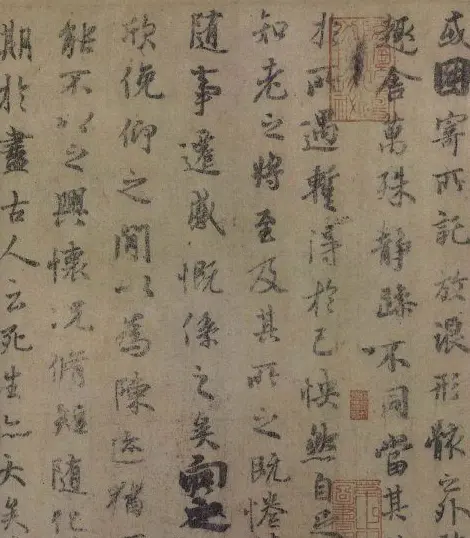 或因寄所託放浪形骸之外
趣舍萬殊靜躁不同當其
於所遇暫得於己怏然自足
知老之將至及其所之既惓
隨事遷感慨係之矣向之
欣俛仰之閒以為陳迹猶
能不以之興懷況脩短隨化
期於盡古人云死生亦大矣